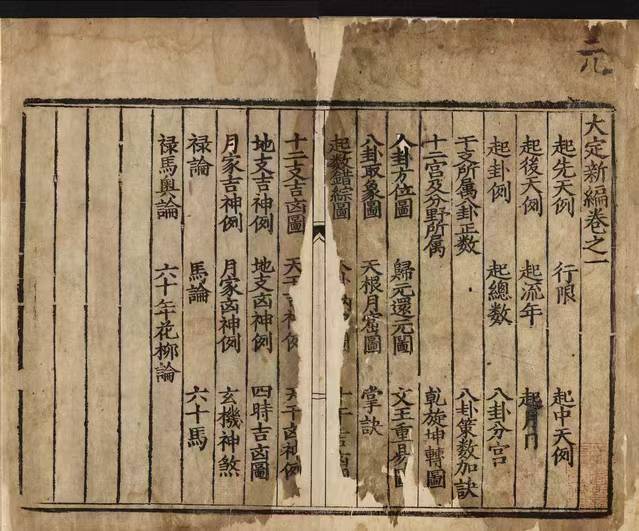 大定新編卷之一
起先天例 行限 起中天例
起後天例 起流年 起月
起卦例 起總数 八卦分宫
干支所属八卦正数 八卦策数加訣
十二宫及分野所属 乾旋坤轉圖
八卦方位圖 歸元還元圖 文王重易圖
八卦取象圖 天根月窟圖 掌訣
起数錯綜圖
十二支吉凶圖 天干吉神例 天干凶神例
地支吉神例 地支凶神例 四時吉凶圖
月家吉神例 月家凶神例 玄機神煞
禄論 馬論 六十馬
禄馬輿論 六十年花柳論